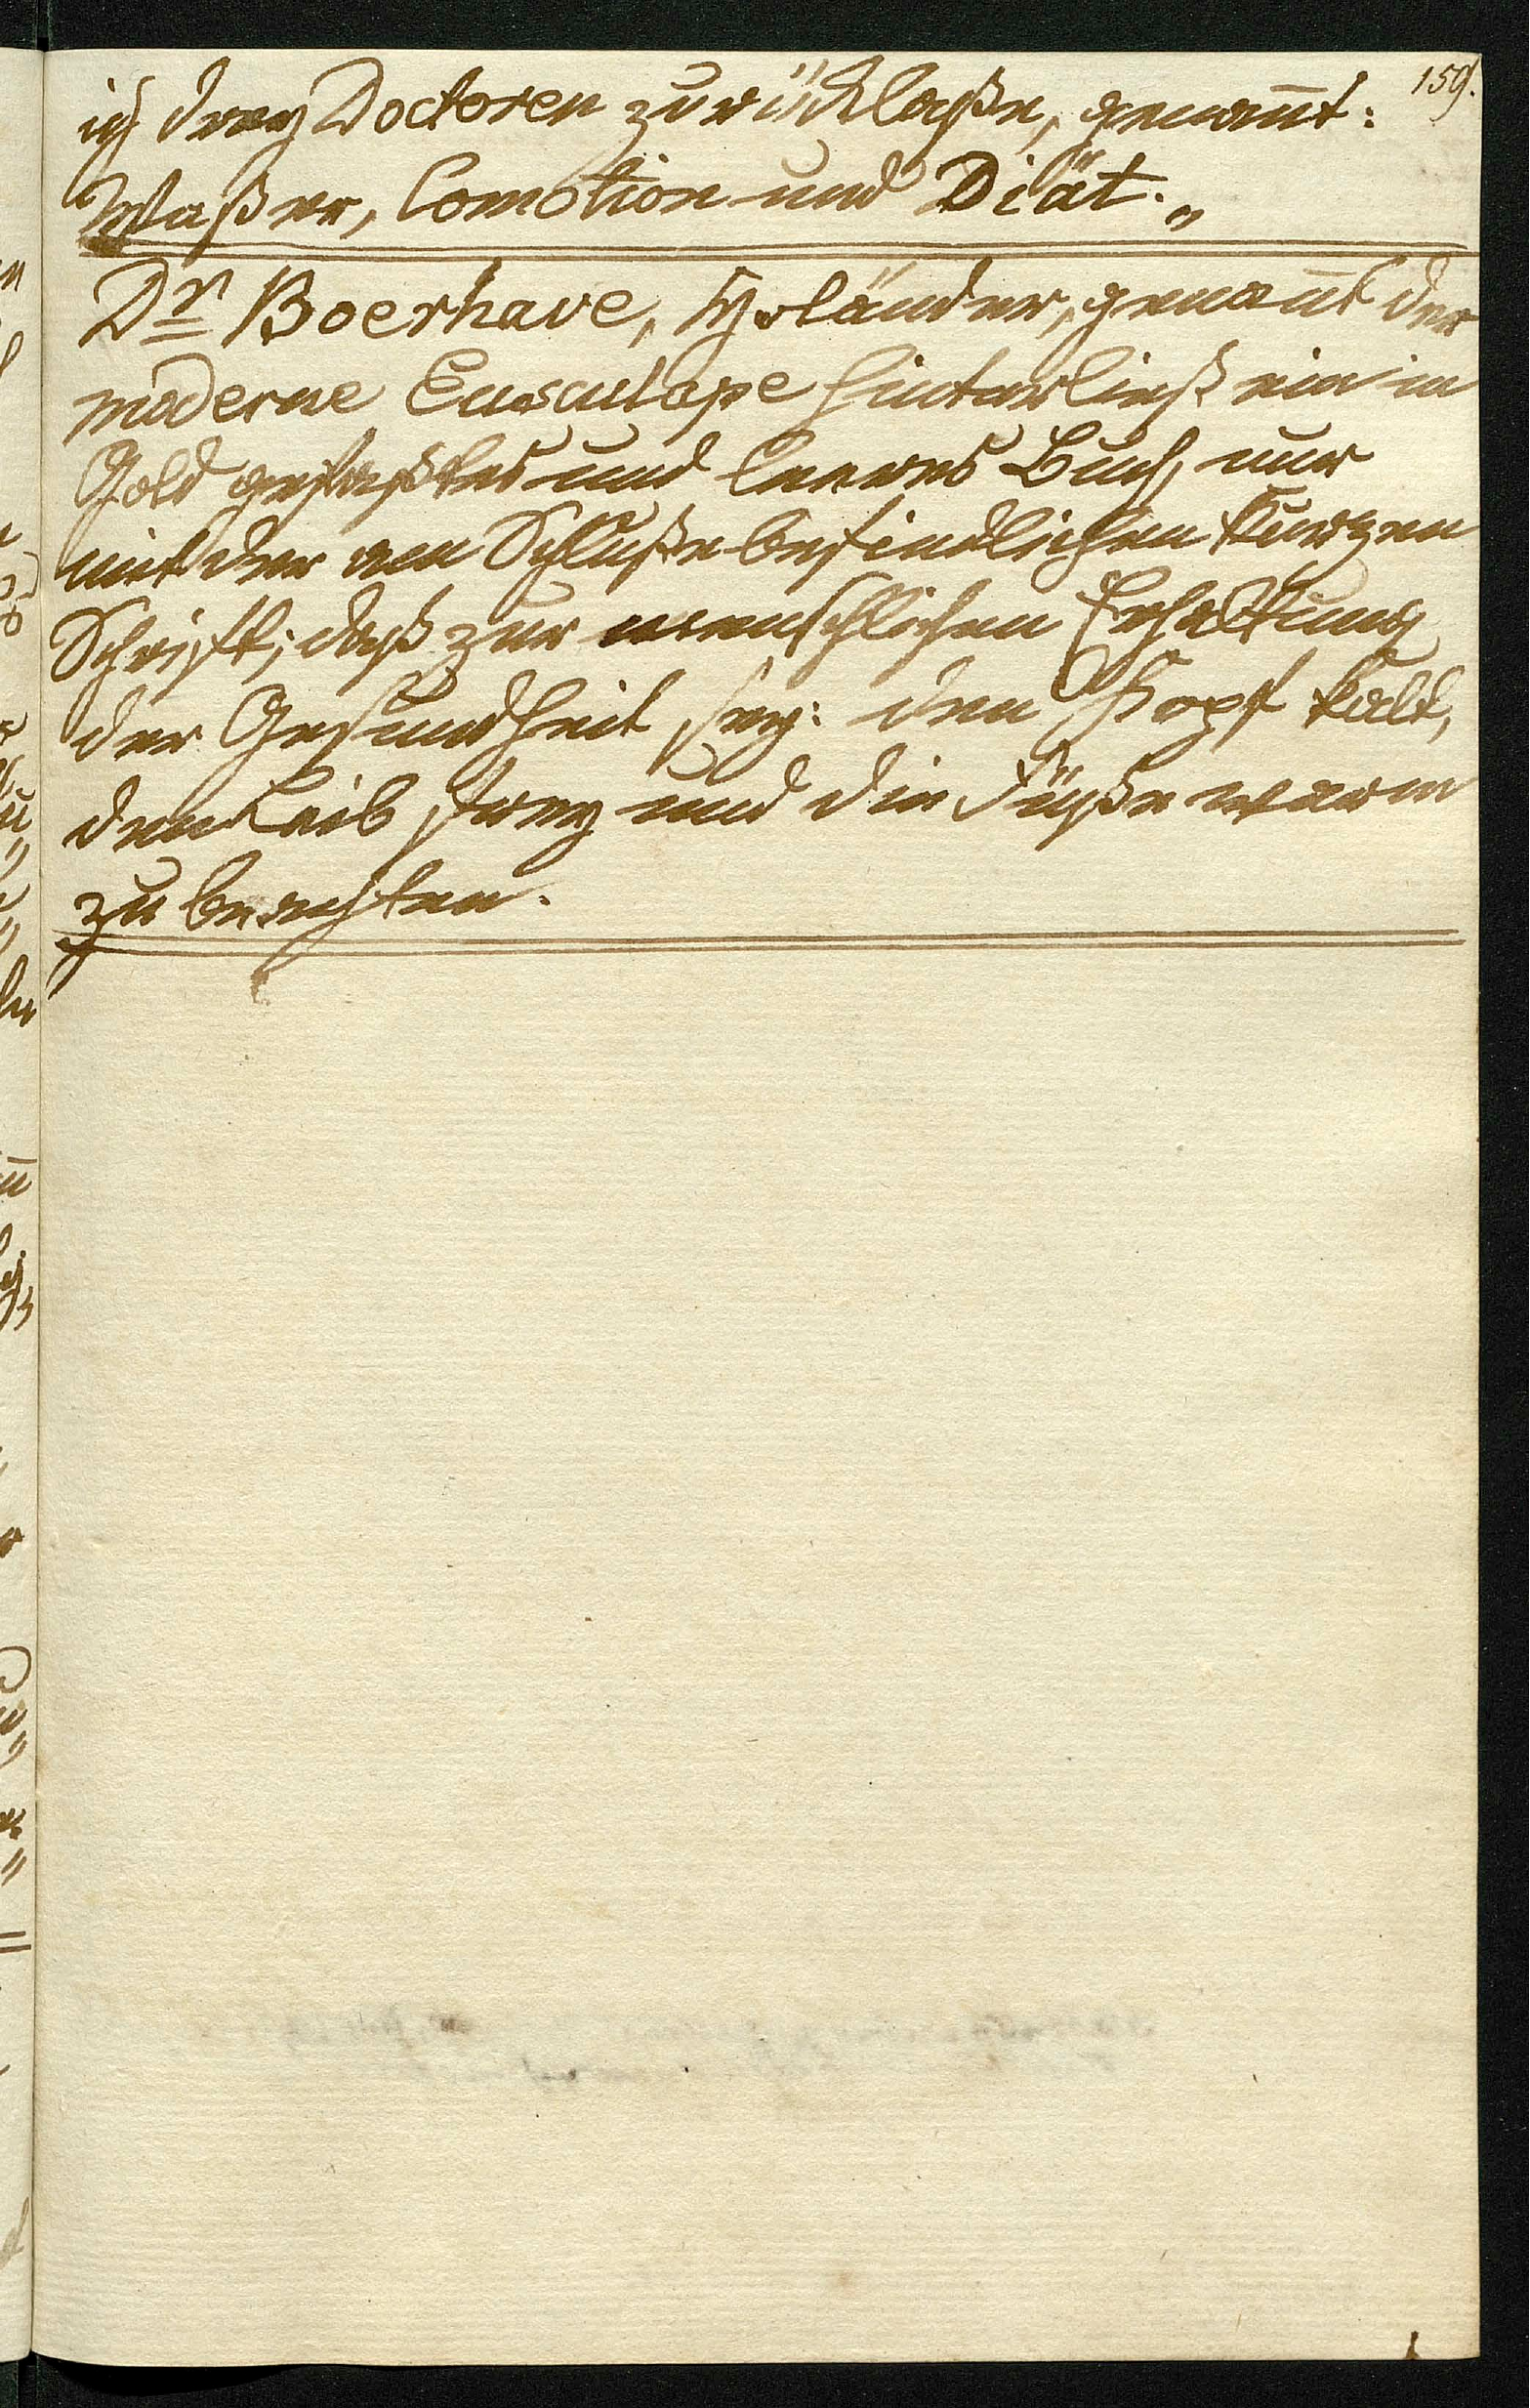 159.
ich drey Doctoren zurücklaße, genañt:
Waßer, Comotion und Diät.„
Dr Boerhave, Holänder, genañt der
moderne Eusculape hinterließ ein in
Gold gefaßtes und leeres Buch, nur
mit der am Schluße befindlichen kurzen
Schrift; daß zur menschlichen Erhaltung
der Gesundheit sey: den Kopf kalt,
den Leib frey und die Füße warm
zu beachten.